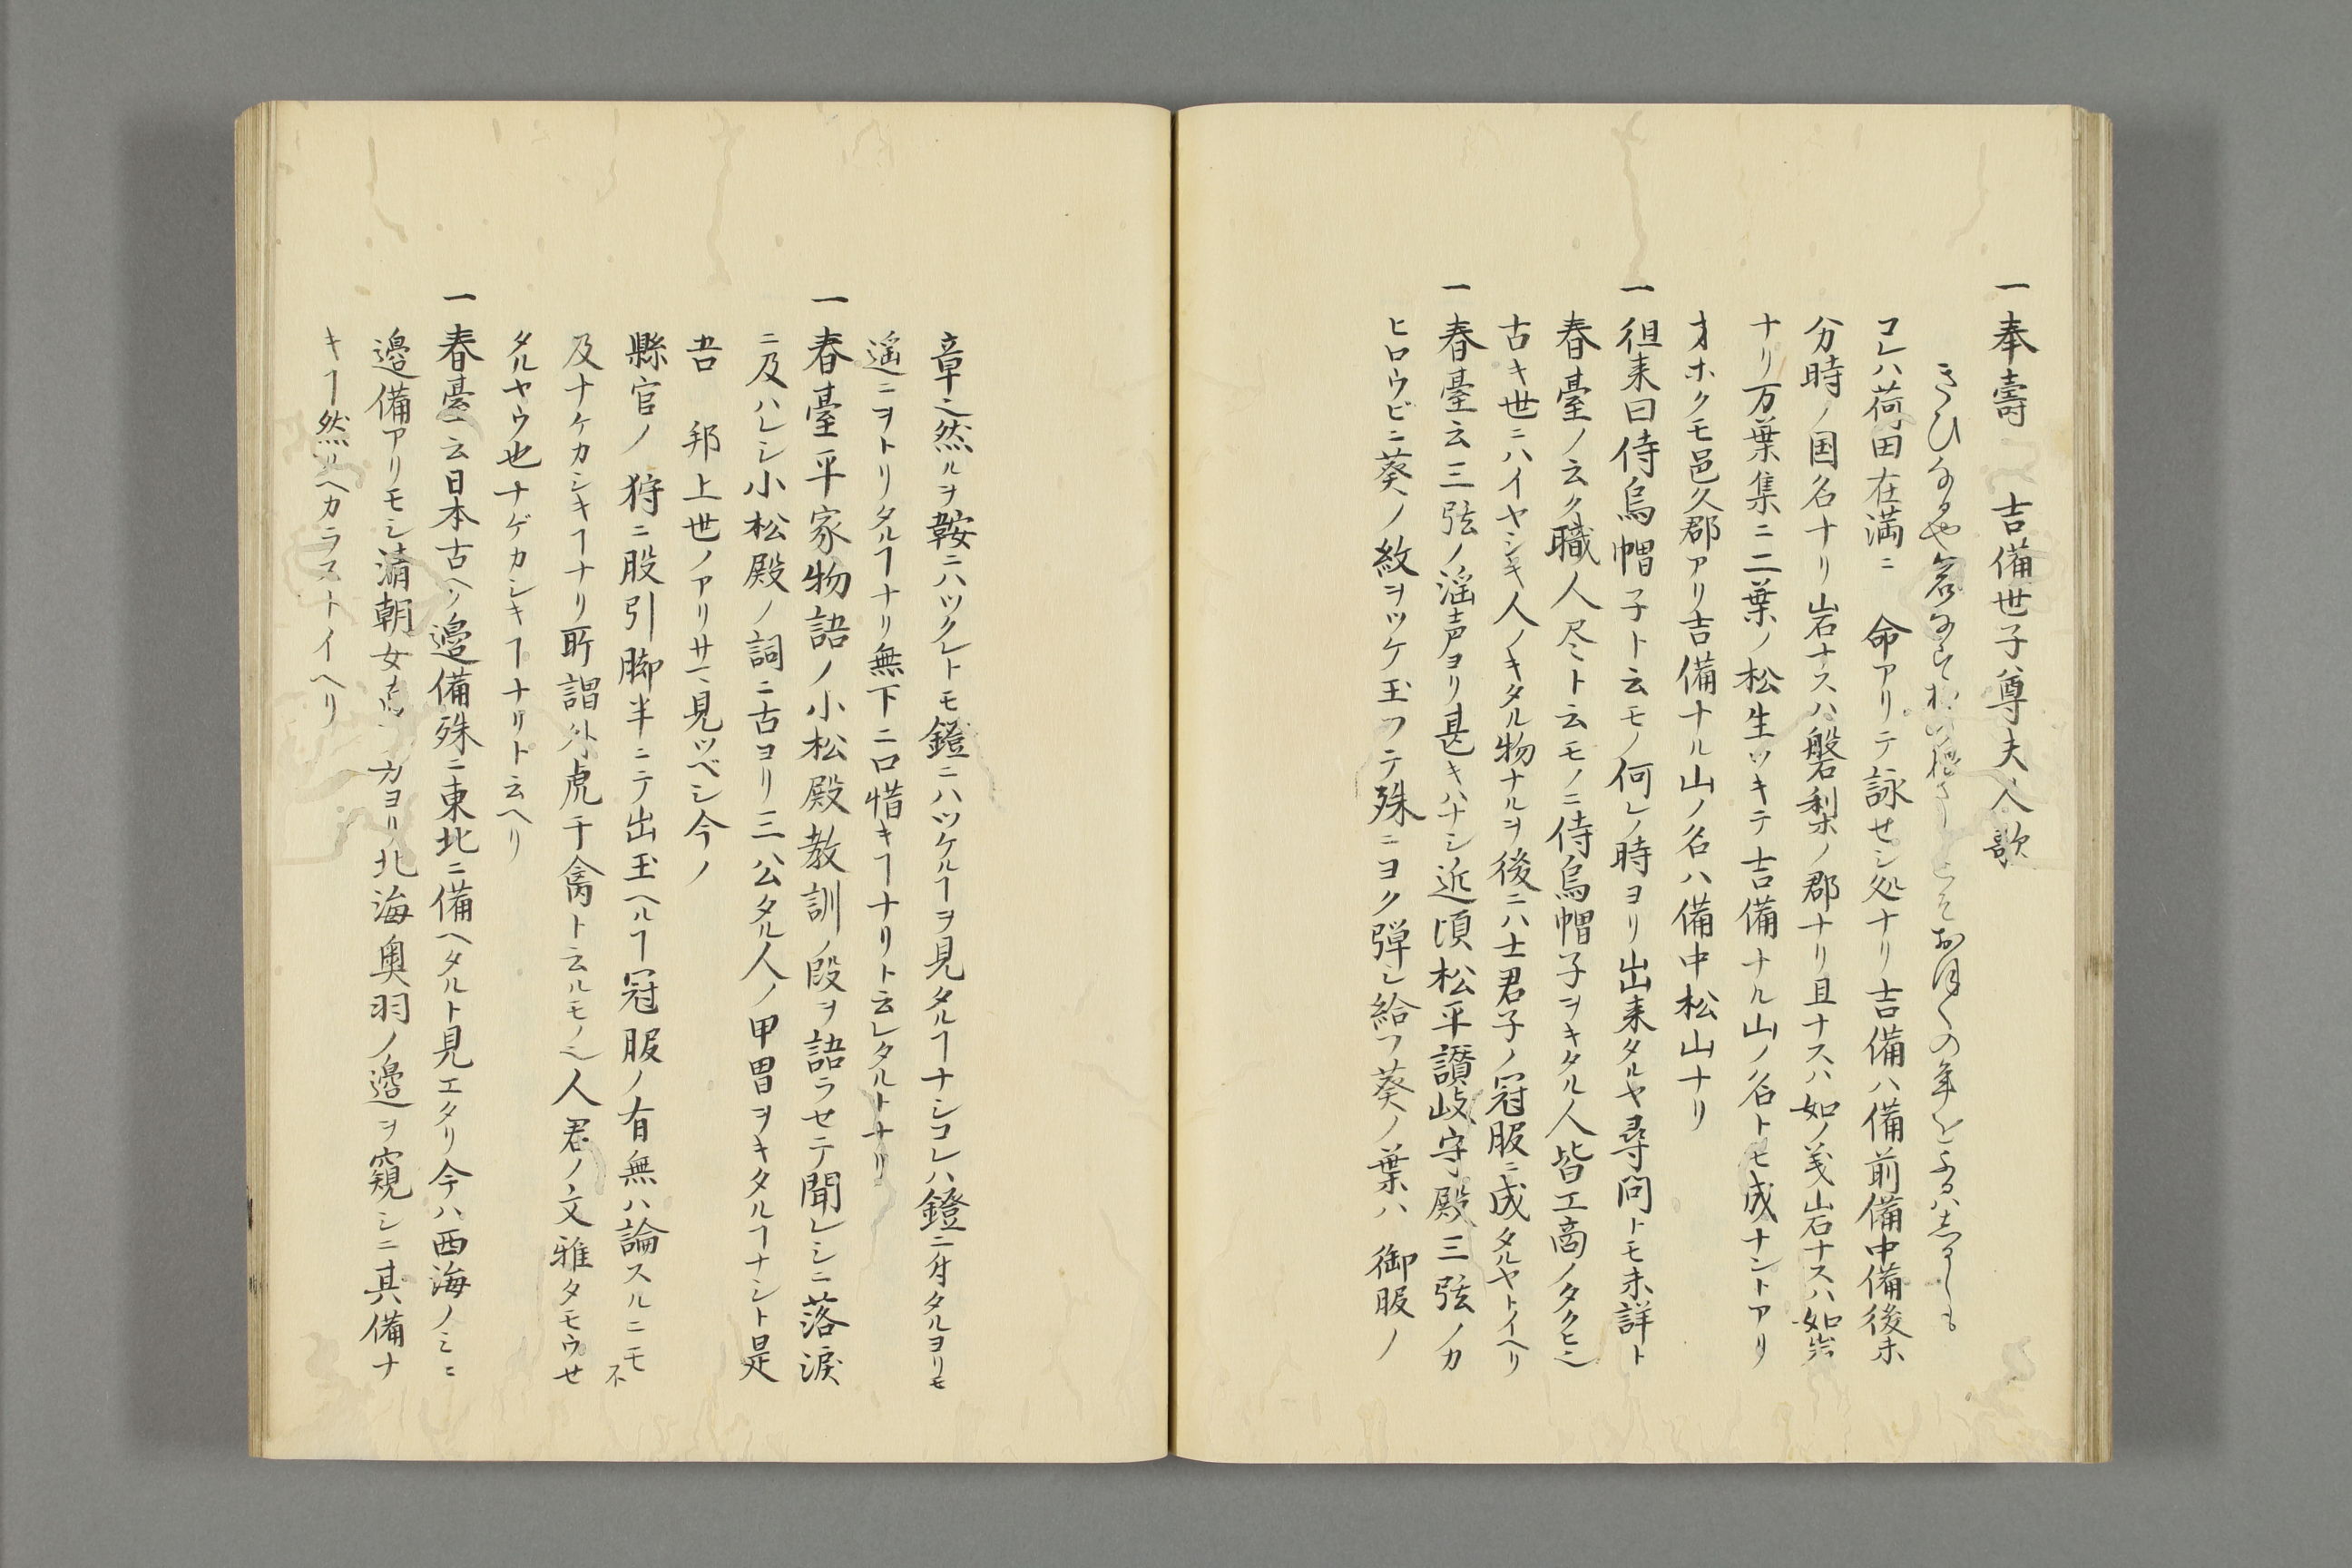 一奉壽　吉備世子尊夫人歌
きひなるや岩なすおの松
コレハ荷田在満ニ　命アリテ詠セシ処ナリ吉備ハ備前備中備後未
分時ノ国名ナリ岩ナスハ磐梨ホノ郡ナリ且ナスハ如ノ義岩ナスハ如岩
ナリ万葉集ニ二葉ノ松生ツキテ吉備ナル山ノ名トモ成ナントアリ
オホクモ邑久郡アリ吉備ナル山ノ名ハ備中松山ナリ
一徂来曰侍烏帽子ト云モノ何レノ時ヨリ出来タルヤ尋問トモ未詳ト
春臺ノ云ク職人尽ト云モノニ侍烏帽子ヲキタル人皆工商ノタクヒ也
古キ世ニハイヤシキ人ノキタル物ナルヲ後ニハ士君子ノ冠服ニ成タルヤトイヘリ
一春臺云三弦ノ滛声ヨリ甚キハナシ近頃松平讃岐守殿三弦ノカ
ヒロウビニ葵ノ紋ヲツケ玉フテ殊ニヨク弾レ給フ葵ノ葉ハ　御服ノ
章也然ルヲ鞍ニハツクレトモ鐙ニハツケルヿヲ見タルヿナシコレハ鐙ニ付タルヨリモ
遥ニヲトリタルヿナリ無下ニ口惜キヿナリト云レタルトナリ
一春臺平家物語ノ小松殿教訓ノ段ヲ語ラセテ聞レシニ落涙
ニ及ハレシ小松殿ノ詞ニ古ヨリ三公タル人ノ甲冑ヲキタルヿナシト是
吾　邦上世ノアリサマ見ツベシ今ノ
縣官ノ狩ニ股引脚半ニテ出玉ヘルヿ冠服ノ有無ハ論スルニモ不
及ナケカシキヿナリ所謂外虎干禽ト云ルモノ也人君ノ文雅タモウセ
タルヤウ也ナゲカシキヿナリト云ヘリ
一春臺云日本古ヘソ邉備殊ニ東北ニ備ヘタルト見エタリ今ハ西海ノミニ
邉備アリモシ清朝女方ヨリ北海奥羽ノ邉ヲ窺シニ其備ナ
キヿ然ルヘカラストイヘリ